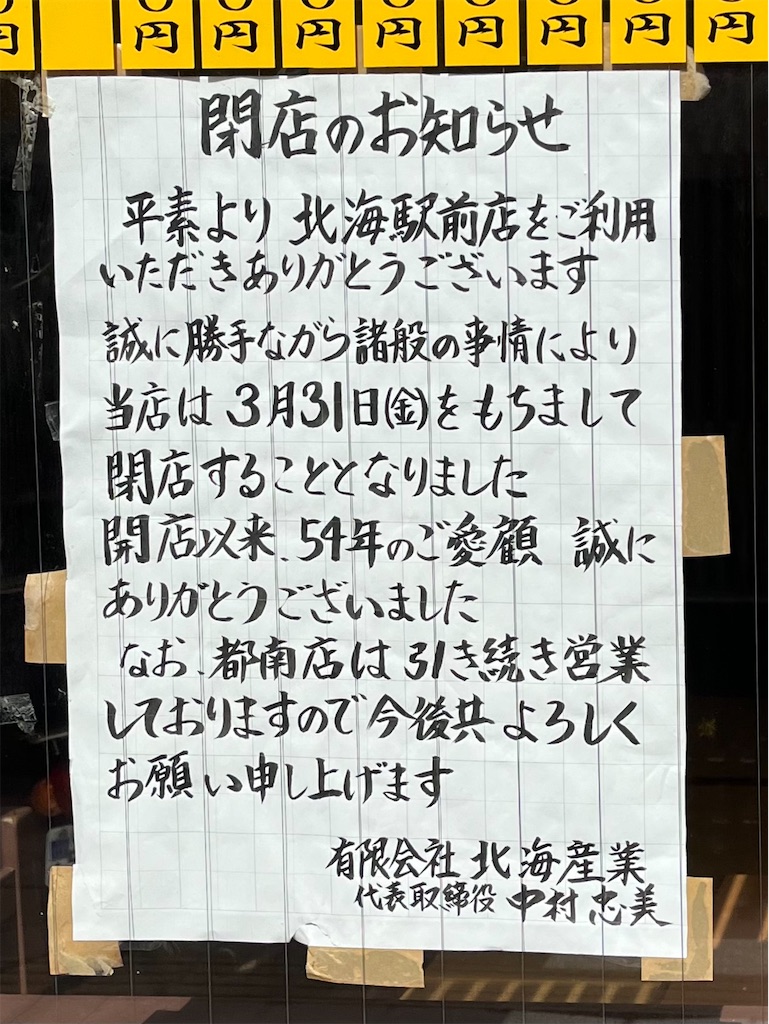 円 円 円 円 円 円 円 円 円
閉店のお知らせ
平素より 北海駅前店をご利用
いただきありがとうございます
誠に勝手ながら諸般の事情により
当店は3月31日(金)をもちまして
閉店することとなりました
開店以来、54年のご愛顧 誠に
ありがとうございました
なお、都南店は引き続き営業
しておりますので今後共よろしく
お願い申し上げます
有限会社 北海産業
代表取締役 中村忠美